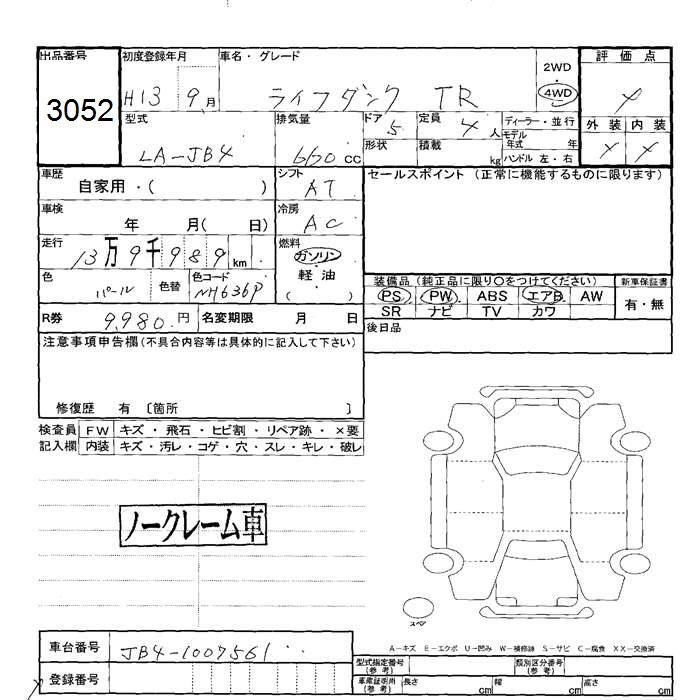 出品番号 初度登録年月 車名・グレード 評価点
3052
H13 9月 ライフダンク TR 2WD 4WD
型式 排気量 ドア 定員 ディーラー・並行 外装 内装
LA-JB4 660cc 5 4人 モデル年式 年
形状 積載 kg ハンドル 左・右
車歴 自家用・( ) シフト AT セールスポイント (正常に機能するものに限ります)
車検 年 月( 日) 冷房 AC
走行 13万9千989km 燃料 ガソリン
軽油
( )
色 パール 色替 色コード NH636P
装備品 (純正品に限り○をつけてください) 新車保証書
PS PW ABS エアB AW 有・無
SR ナビ TV カワ
R券 9,980円 名変期限 月 日
後日品
注意事項申告欄(不具合内容等は具体的に記入して下さい)
修復歴 有 〔箇所 〕
検査員 FW キズ・飛石・ヒビ割・リペア跡・×要
記入欄 内装 キズ・汚レ・コゲ・穴・スレ・キレ・破レ
ノークレーム車
スペア
A-キズ E-エクボ U-凹み W-補修跡 S-サビ C-腐食 XX-交換済
車台番号 JB4-1007561
登録番号
型式指定番号(参考) 類別区分番号(参考)
車庫証明用(参考) 長さ cm 幅 cm 高さ cm